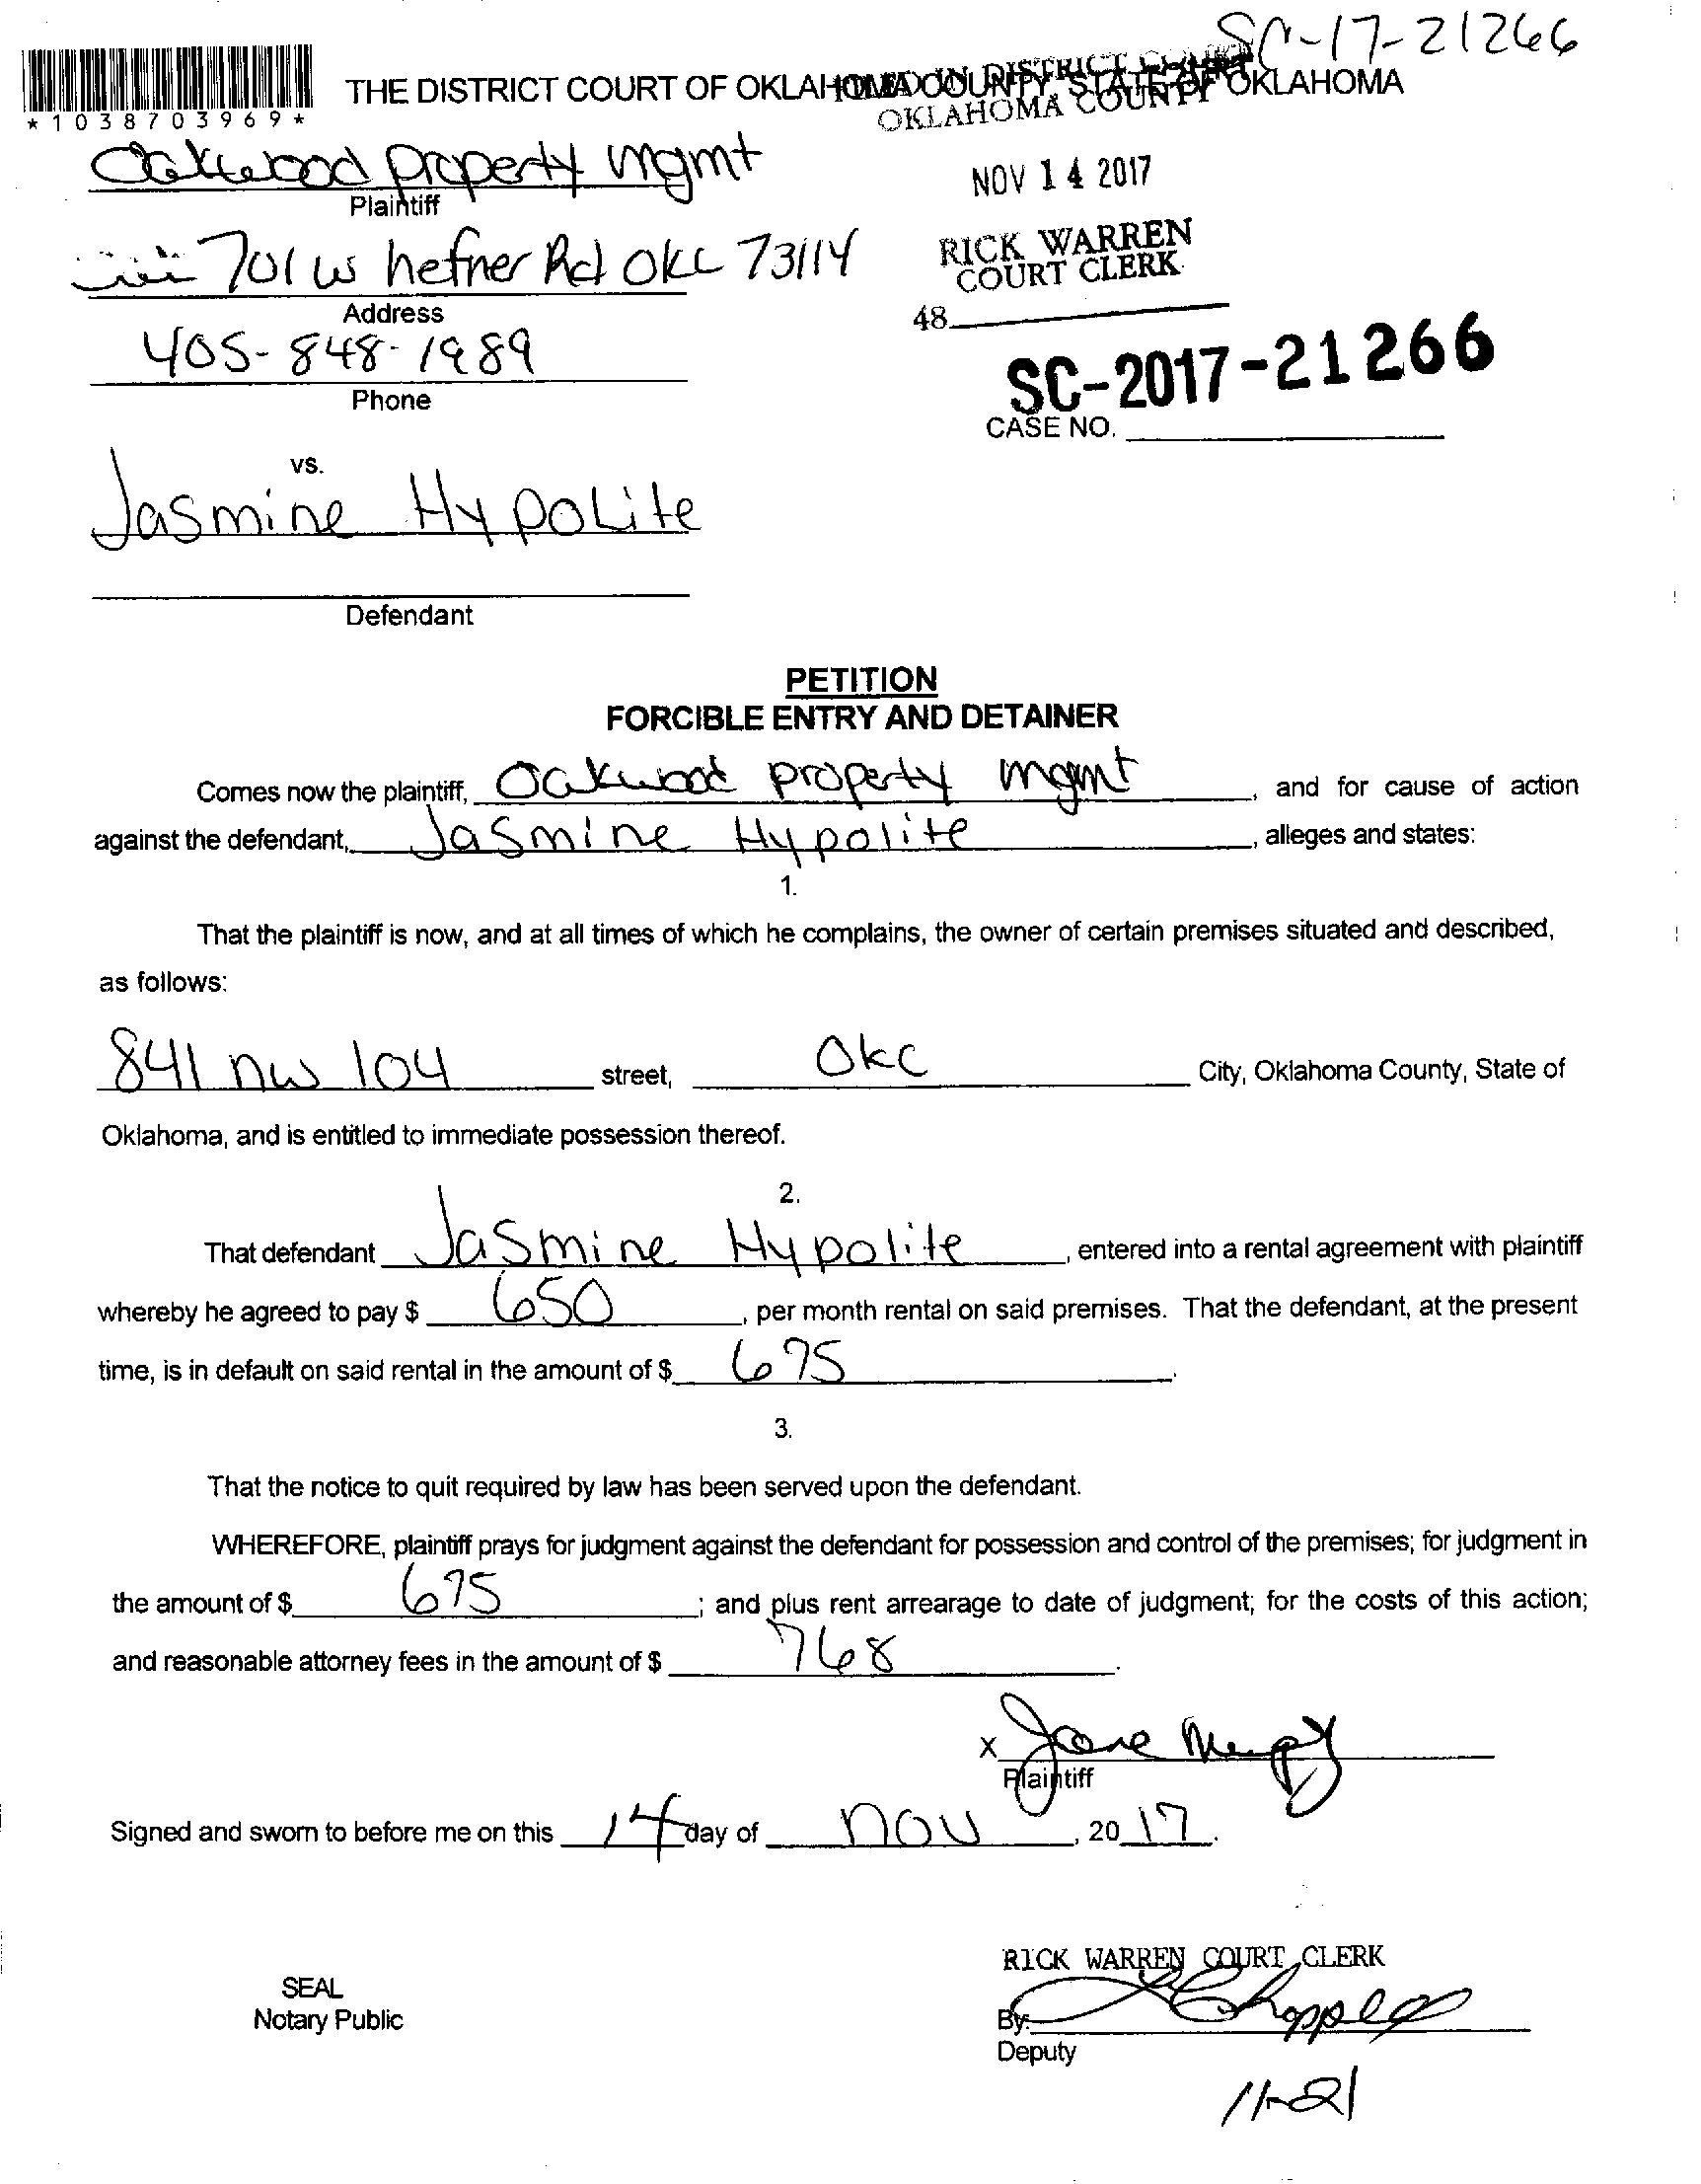 SC-17-21266
*1038703969*
THE DISTRICT COURT OF OKLAHOMA COUNTY, STATE OF OKLAHOMA
FILED IN DISTRICT COURT
OKLAHOMA COUNTY
Oakwood property mgmt
Plaintiff
NOV 14 2017
RICK WARREN
COURT CLERK
48
701 W hefner Rd OKC 73114
Address
405-848-1989
Phone
SC-2017-21266
CASE NO.
vs.
Jasmine Hypolite
Defendant
PETITION
FORCIBLE ENTRY AND DETAINER
Comes now the plaintiff, Oakwood property mgmt, and for cause of action
against the defendant, Jasmine Hypolite, alleges and states:
1.
That the plaintiff is now, and at all times of which he complains, the owner of certain premises situated and described,
as follows:
841 nw 104 street, OKC City, Oklahoma County, State of
Oklahoma, and is entitled to immediate possession thereof.
2.
That defendant Jasmine Hypolite, entered into a rental agreement with plaintiff
whereby he agreed to pay $ 650, per month rental on said premises. That the defendant, at the present
time, is in default on said rental in the amount of $ 675.
3.
That the notice to quit required by law has been served upon the defendant.
WHEREFORE, plaintiff prays for judgment against the defendant for possession and control of the premises; for judgment in
the amount of $ 675; and plus rent arrearage to date of judgment; for the costs of this action;
and reasonable attorney fees in the amount of $ 768.
X Jane
Plaintiff
Signed and sworn to before me on this 14 day of nov, 2017.
RICK WARREN COURT CLERK
SEAL
Notary Public
By:
Deputy
11-21